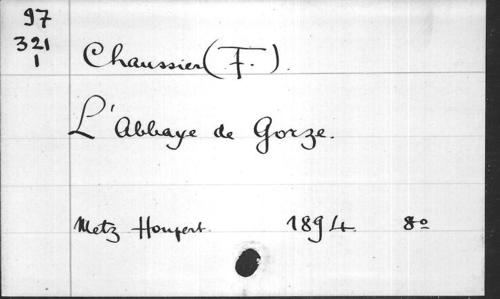 97
321
1
Chaussier (F.).
L'Abbaye de Gorze.
Metz Houpert. 1894. 8º